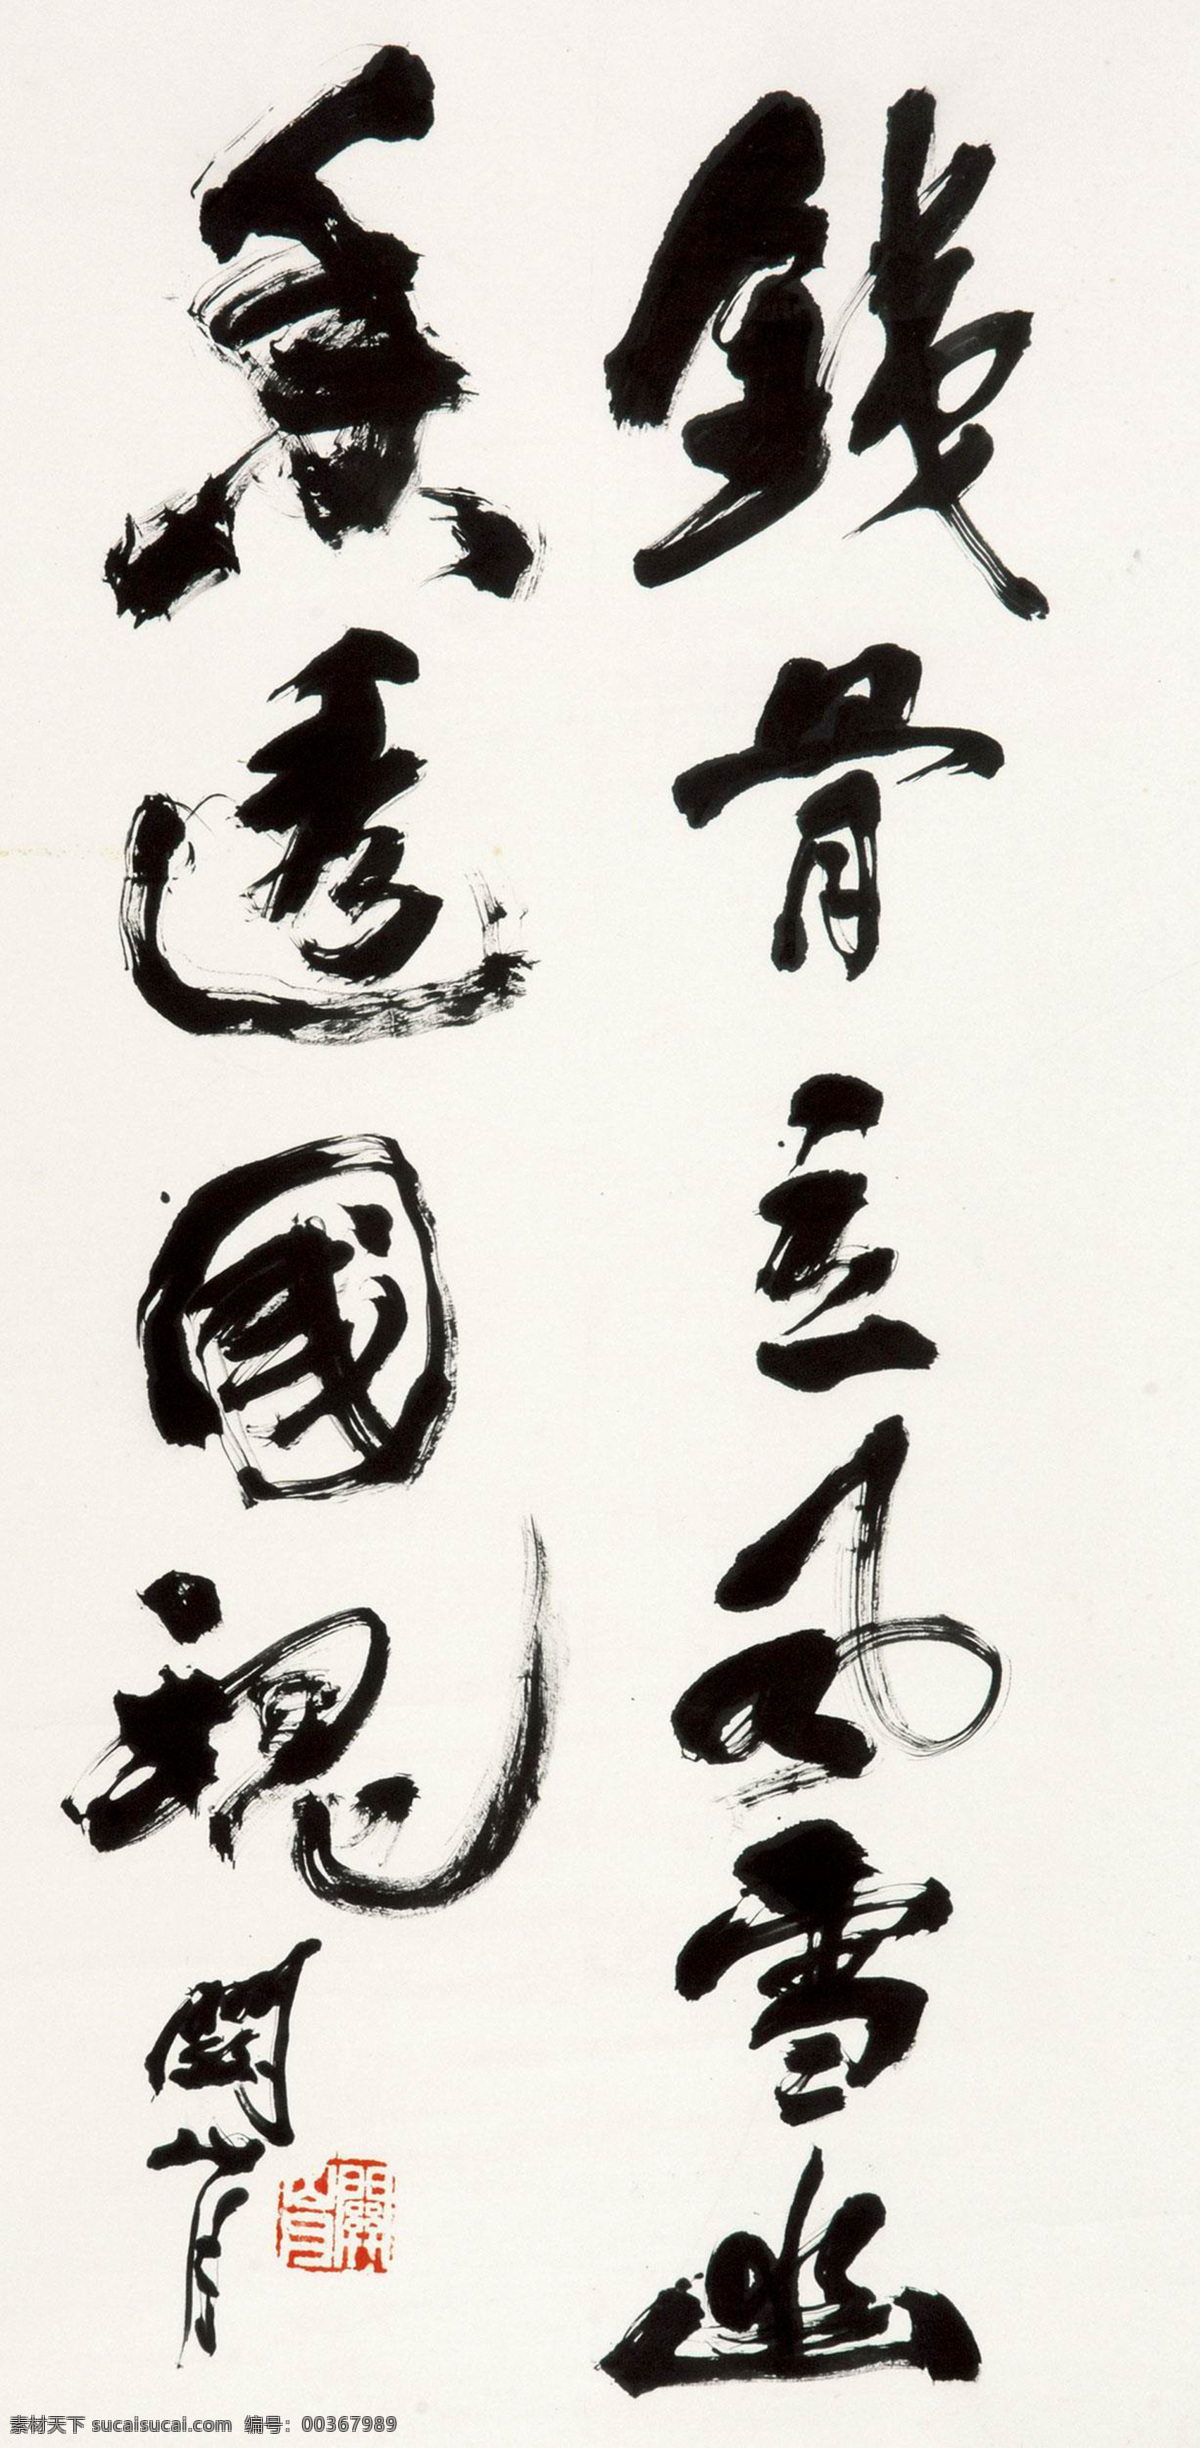 鐵骨立風雪幽
香透國魂
關山月
關山月
素材天下 sucaisucai.com 编号：00367989